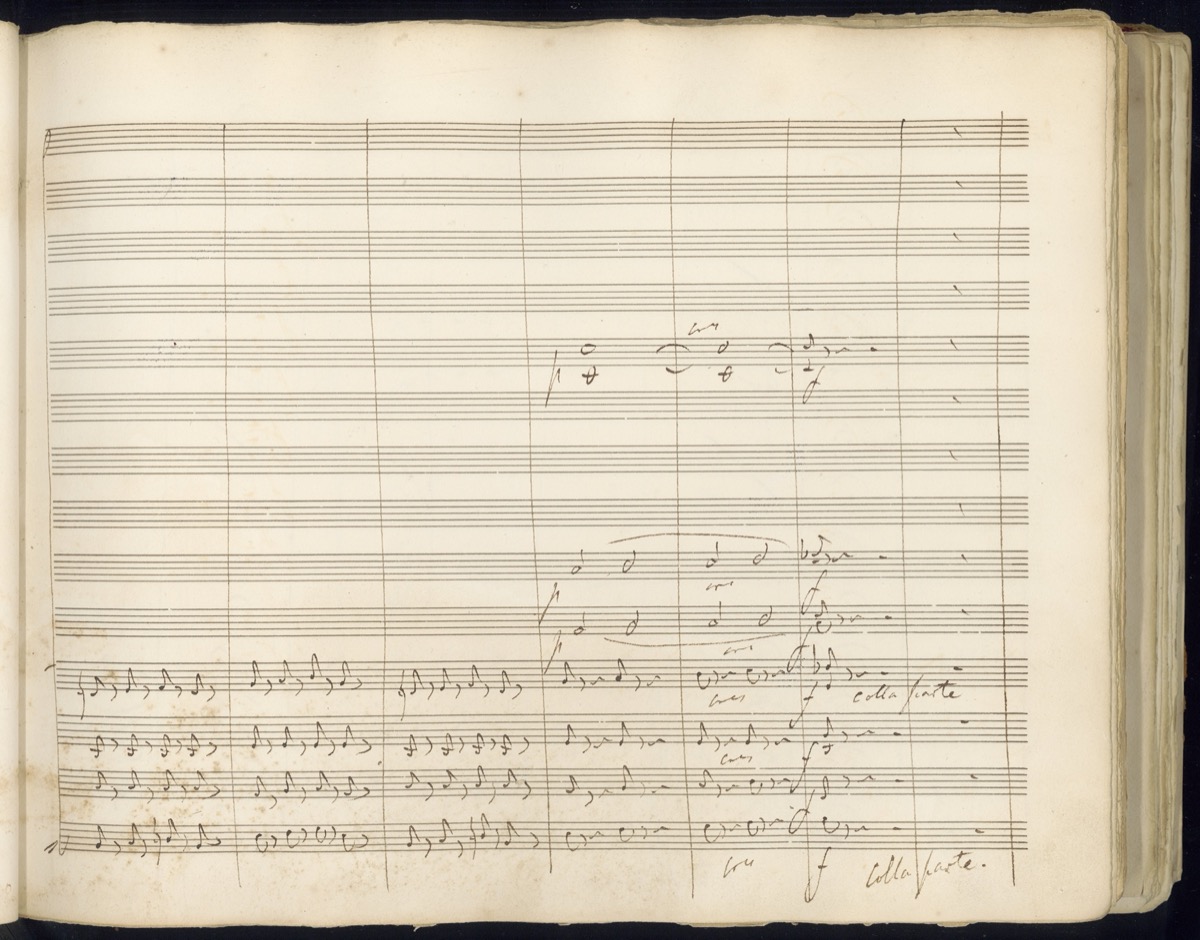 cres
p
f
cres
p
f
cres
p
cres
f
colla parte
cres
f
cres
f
colla parte.